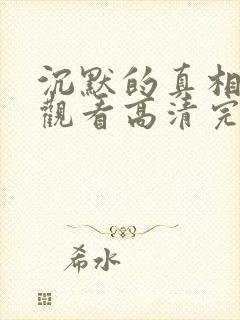 沉默的真相
觀看高清完
希水